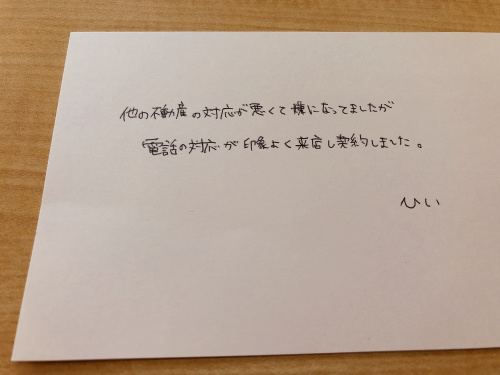 他の不動産の対応が悪くて様になってましたが
電話の対応が印象よく来店し契約しました。
ひい